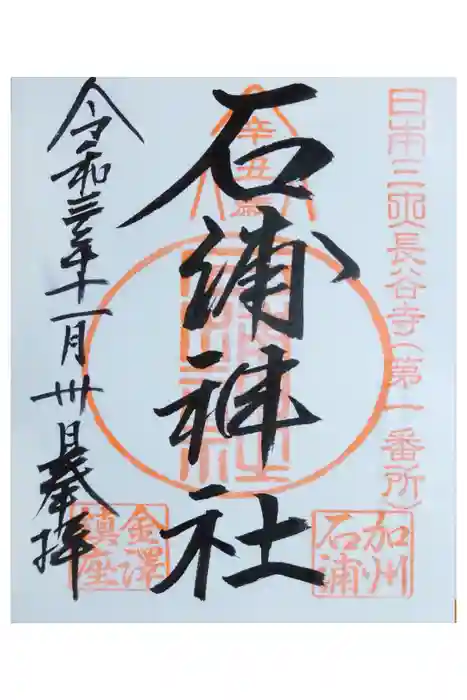 日本三所長谷寺(第一番所)
辛丑歳
石浦神社
加州
石浦
金澤
鎮座
令和三年十一月卅日奉拝